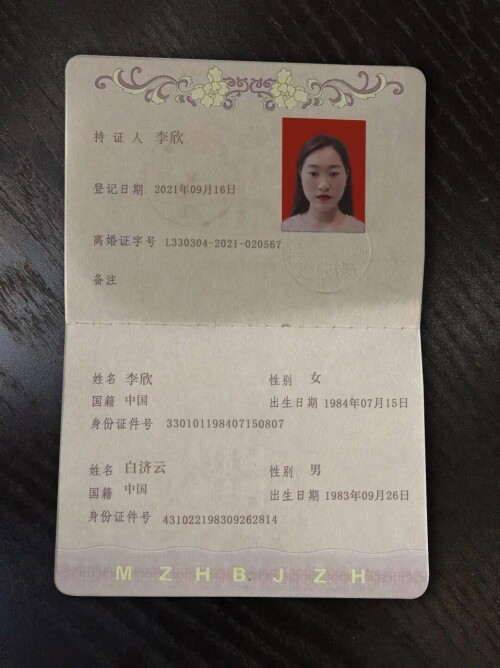 持证人 李欣
登记日期 2021年09月16日
离婚证字号 L330304-2021-020567
备注
姓名 李欣 性别 女
国籍 中国 出生日期 1984年07月15日
身份证件号 330101198407150807
姓名 白济云 性别 男
国籍 中国 出生日期 1983年09月26日
身份证件号 431022198309262814
MZHBJZH